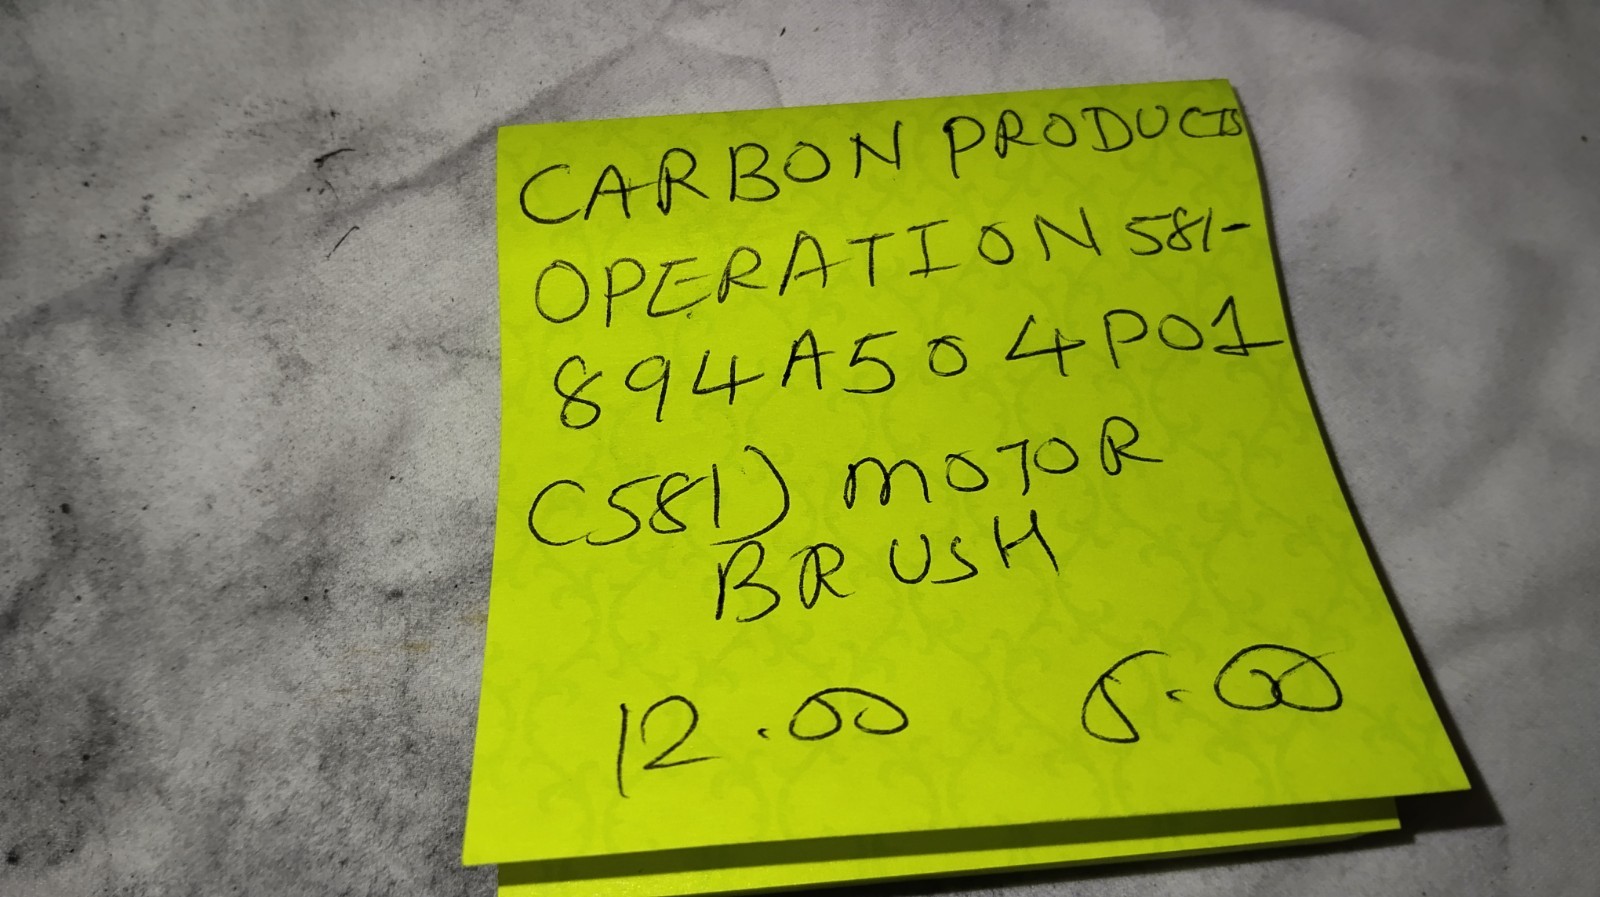 CARBON PRODUCTS
OPERATION 581-
894A504P01
(581) MOTOR
BRUSH
12.00 8.00